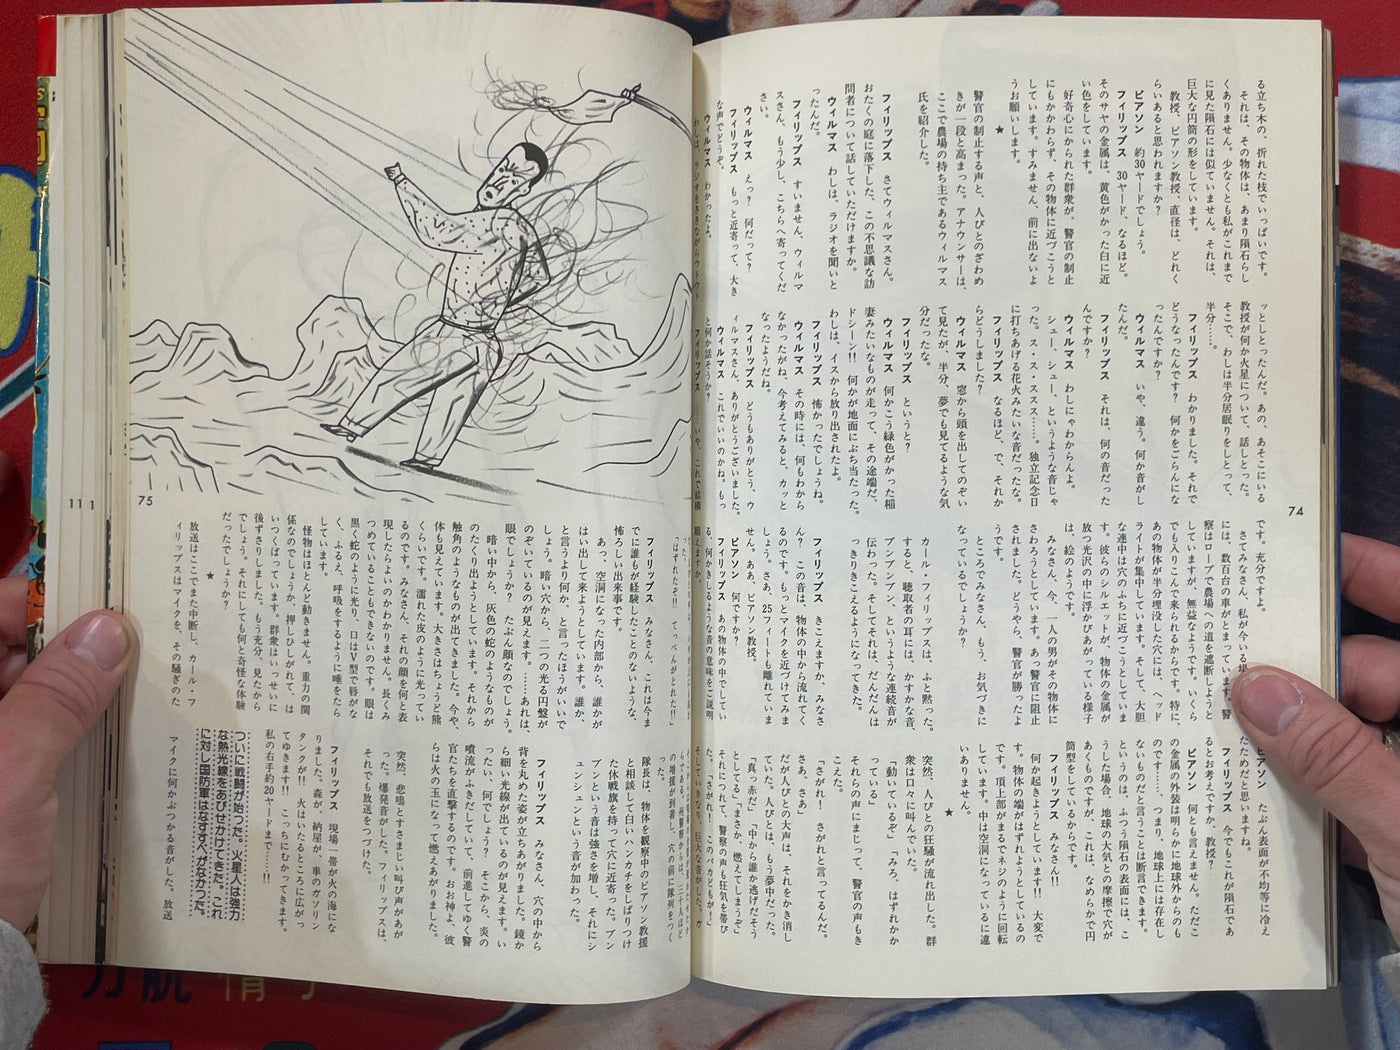 る立ち木の、折れた枝でいっぱいです。
それは、その物体は、あまり隕石らし
くありません。少なくとも私がこれまで
に見た隕石には似ていません。それは、
巨大な円筒の形をしています。
教授、ピアソン教授、直径は、どれく
らいあると思われますか？
ピアソン　約30ヤードでしょう。
フィリップス　30ヤード、なるほど。
そのサヤの金属は、黄色がかった白に近
い色をしています。
好奇心にかられた群衆が、警官の制止
にもかかわらず、その物体に近づこうと
しています。すみません、前に出ないよ
うお願いします。
★
警官の制止する声と、人びとのざわめ
きが一段と高まった。アナウンサーは、
ここで農場の持ち主であるウィルマス
氏を紹介した。
フィリップス　さてウィルマスさん。
おたくの庭に落下した、この不思議な訪
問者について話していただけますか。
ウィルマス　わしは、ラジオを聞いと
ったんだ。
フィリップス　すいません、ウィルマ
スさん、もう少し、こちらへ寄ってくだ
さい。
ウィルマス　えっ？　何だって？
フィリップス　もっと近寄って、大き
な声でどうぞ。
ウィルマス　わかったよ。
わしは、ラジオをききながらウットウト
ッとしとったんだ。あの、あそこにいる
教授が何か火星について、話しとった。
そこで、わしは半分居眠りをしとって、
半分……。
フィリップス　わかりました。それで
どうなったんです？　何かをごらんにな
ったんですか？
ウィルマス　いや、違う。何か音がし
たんだ。
フィリップス　それは、何の音だった
んですか？
ウィルマス　わしにゃわからんよ。
シュー、シュー、というような音じゃ
った。ス・ス・ススス……。独立記念日
に打ちあげる花火みたいな音だったな。
フィリップス　なるほど、で、それか
らどうしました？
ウィルマス　窓から頭を出してのぞい
て見たが、半分、夢でも見てるような気
分だったな。
フィリップス　というと？
ウィルマス　何かこう緑色がかった稲
妻みたいなものが走って、その途端だ、
ドシーン!!　何かが地面にぶち当たった。
わしは、イスから放り出されたよ。
フィリップス　怖かったでしょうね。
ウィルマス　その時には、何もわから
なかったがね、今考えてみると、カッと
なったようだね。
フィリップス　どうもありがとう、ウ
ィルマスさん、ありがとうございました。
ウィルマス　これでいいのかね。もっ
と何か話そうか？
フィリップス　……いや、これで結構
です。充分ですよ。
さてみなさん、私が今いる場
には、数百台の車がとまっています。警
察はロープで農場への道を遮断しようと
していますが、無益なようです。いくら
でも入りこんで来られるからです。特に、
あの物体が半分埋没した穴には、ヘッド
ライトが集中しています。そして、大胆
な連中は穴のふちに近づこうとしていま
す。彼らのシルエットが、物体の金属が
放つ光沢の中に浮かびあがっている様子
は、絵のようです。
みなさん、今、一人の男がその物体に
さわろうとしています。あっ警官に阻止
されました。どうやら、警官が勝ったよ
うです。
ところでみなさん、もう、お気づきに
なっているでしょうか？
カール・フィリップスは、ふと黙った。
すると、聴取者の耳には、かすかな音、
ブンブンブン、というような連続音が
伝わった。そしてそれは、だんだんは
っきりきこえるようになってきた。
フィリップス　きこえますか、みなさ
ん？　この音は、物体の中から流れてく
るのです。もっとマイクを近づけてみま
しょう。さあ、25フィートも離れていま
せん。ああ、ピアソン教授。
ピアソン　何ですか？
フィリップス　あの物体の中でしてい
る、何かきしるような音の意味をご説明
願えますか。
ピアソン　たぶん表面が不均等に冷え
たためだと思いますね。
フィリップス　今でもこれが隕石であ
るとお考えですか、教授？
ピアソン　何とも言えません。ただこ
の金属の外装は明らかに地球外からのも
のです……。つまり、地球上には存在し
ないものだと言うことは断言できます。
というのは、ふつう隕石の表面には、こ
うした場合、地球の大気との摩擦で穴が
あくものですが、これは、なめらかで円
筒型をしているからです。
フィリップス　みなさん!!
何か起きようとしています!!　大変で
す。物体の端がはずれようとしているの
です。頂上部がまるでネジのように回転
しています。中は空洞になっているに違
いありません。
★
突然、人びとの狂騒が流れ出した。群
衆は口々に叫んでいた。
「動いているぞ」「みろ、はずれかか
っている」
それらの声にまじって、警官の声もき
こえた。
「さがれ！　さがれと言ってるんだ。
さあ、さあ」
だが人びとの大声は、それをかき消し
ていた。人びとは、もう夢中だった。
「真っ赤だ」「中から誰か逃げだそう
としてる」「まさか、燃えてしまうぞ」
それにつれて、警察の声も狂気を帯び
てきた。「さがれ！　このバカどもが！」
74
「はずれたぞ!!　てっぺんがとれた!!」
フィリップス　みなさん、これは今ま
でに誰もが経験したことのないような、
怖ろしい出来事です。
あっ、空洞になった内部から、誰かが
はい出して来ようとしています。誰か、
と言うより何か、と言ったほうがいいで
しょう。暗い穴から、二つの光る円盤が
のぞいているのが見えます。……あれは、
眼でしょうか？　たぶん顔なのでしょう。
暗い中から、灰色の蛇のようなものが
のたくり出ようとしています。それから
触角のようなものが出てきました。今や、
体も見えています。大きさはちょうど熊
くらいです。濡れた皮のように光ってい
るのです。みなさん、それの顔を何と表
現したらよいのかわかりません。長くみ
つめていることもできないのです。眼は
黒く蛇のように光り、口はV型で唇がな
く、ふるえ、呼吸をするように唾をたら
しています。
怪物はほとんど動きません。重力の関
係なのでしょうか。押しひしがれて、は
いつくばっています。群衆はいっせいに
後ずさりしました。もう充分、見たから
でしょう。それにしても何と奇怪な体験
だったでしょうか？
★
放送はここでまた中断し、カール・フ
ィリップスはマイクを、その騒ぎのた
隊長は、物体を観察中のピアソン教授
と相談して白いハンカチをしばりつけ
た休戦旗を持って穴に近寄った。ブン
ブンという音は強さを増し、それにシ
ュンシュンという音が加わった。
フィリップス　みなさん、穴の中から
背を丸めた姿が立ちあがりました。鏡か
ら細い光線が出ているのが見えます。い
ったい、何でしょう？　そこから、炎の
噴流がふきだしていて、前進してゆく警
官たちを直撃するのです。おお神よ、彼
らは火の玉になって燃えあがりました。
突然、悲鳴とすさまじい叫び声があが
った。爆発音がした。フィリップスは、
それでも放送をつづけた。
フィリップス　現場一帯が火の海にな
りました。森が、納屋が、車のソリン
タンクが!!　火はいたるところに広がっ
てゆきます!!　こっちにむかってきます。
私の右手約20ヤードまで……!!
ついに戦闘が始った。火星人は強力
な熱光線をあびせかけてきた。これ
に対し国防軍はなすすべがなかった。
マイクに何かぶつかる音がした。放送
75
111